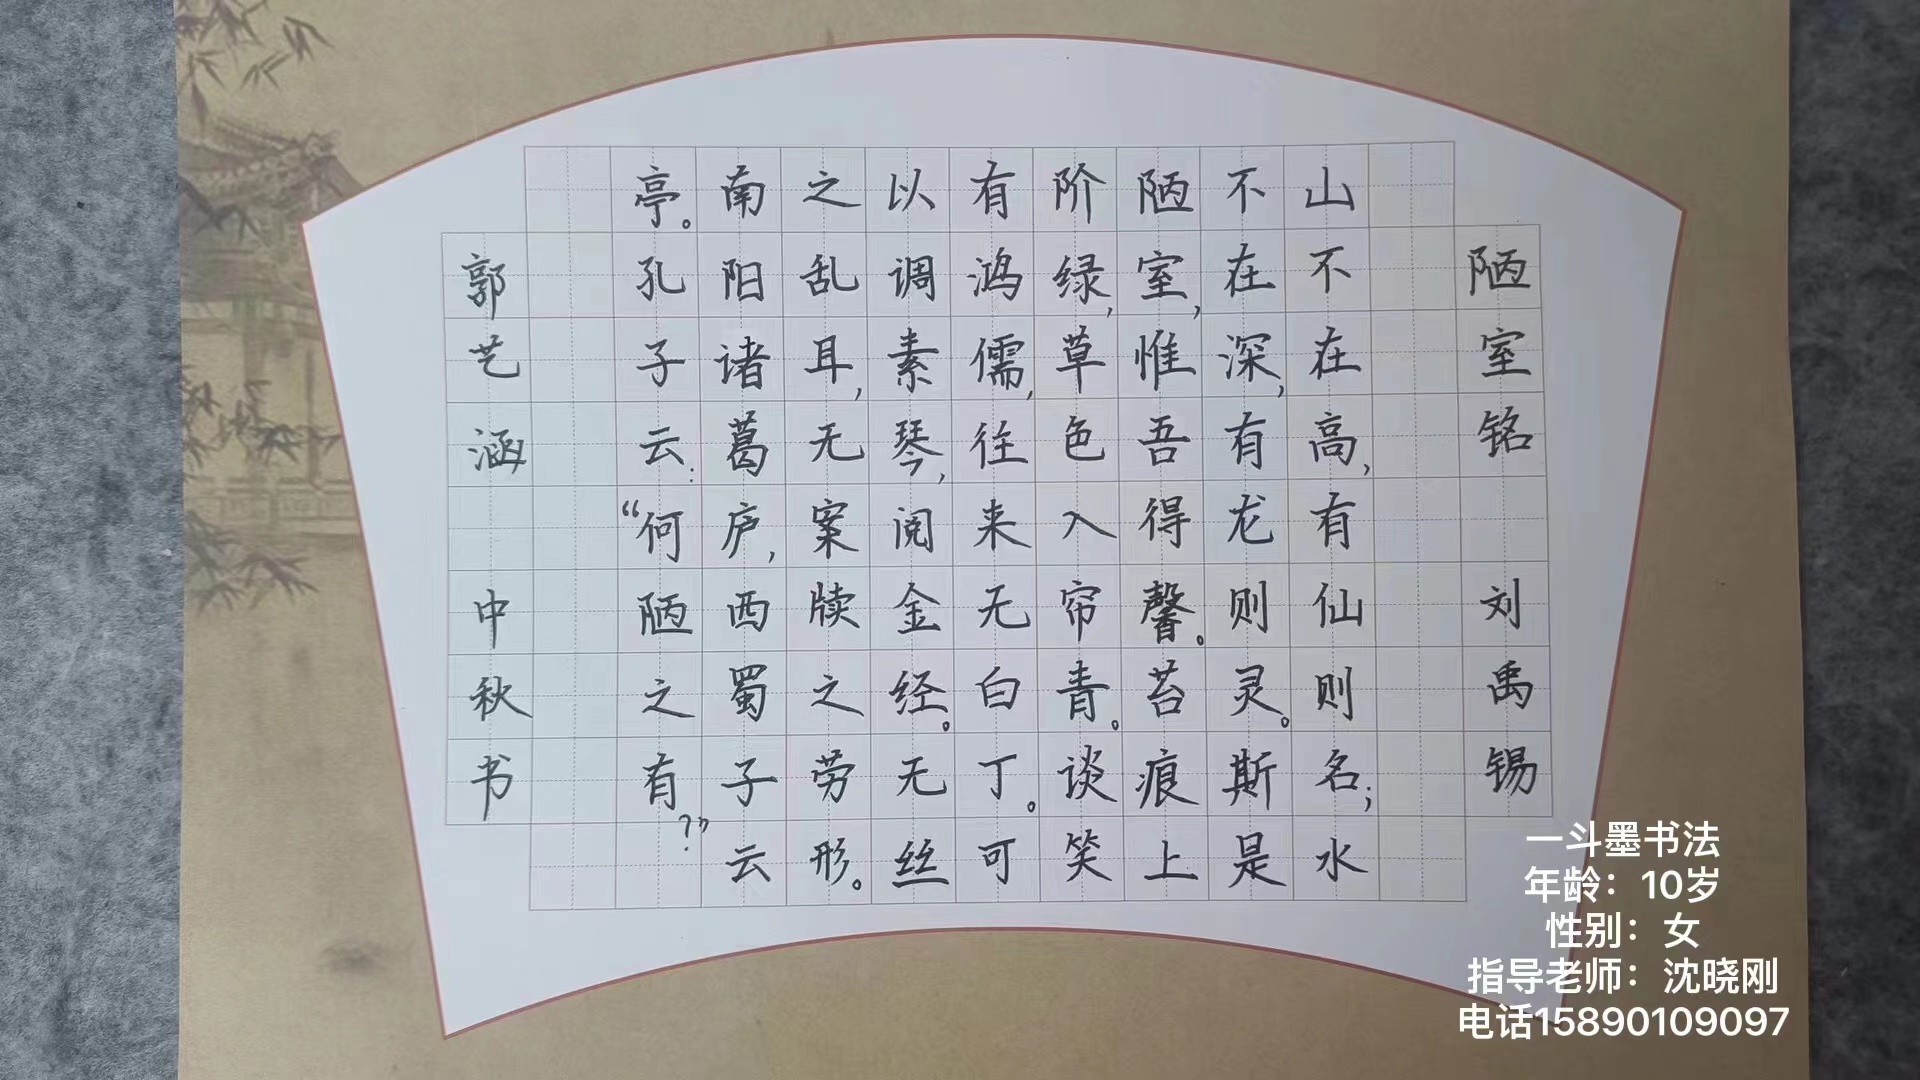 陋室铭 刘禹锡
山不在高,有仙则名;水
不在深,有龙则灵。斯是
陋室,惟吾得馨。苔痕上
阶绿,草色入帘青。谈笑
有鸿儒,往来无白丁。可
以调素琴,阅金经。无丝
之乱耳,无案牍之劳形。
南阳诸葛庐,西蜀子云
亭。孔子云:“何陋之有?”
郭艺涵 中秋书
一斗墨书法
年龄：10岁
性别：女
指导老师：沈晓刚
电话15890109097